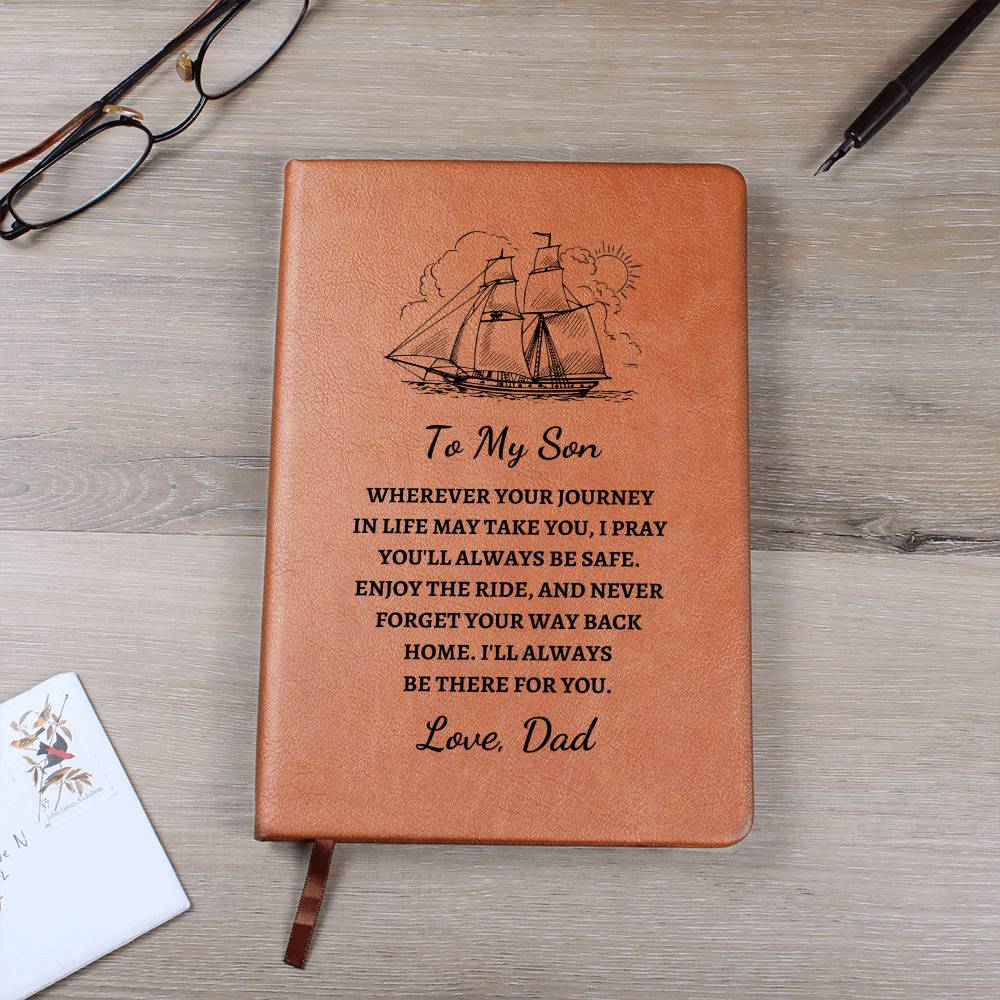 To My Son
WHEREVER YOUR JOURNEY
IN LIFE MAY TAKE YOU, I PRAY
YOU'LL ALWAYS BE SAFE.
ENJOY THE RIDE, AND NEVER
FORGET YOUR WAY BACK
HOME. I'LL ALWAYS
BE THERE FOR YOU.
Love, Dad
37
John James Audubon